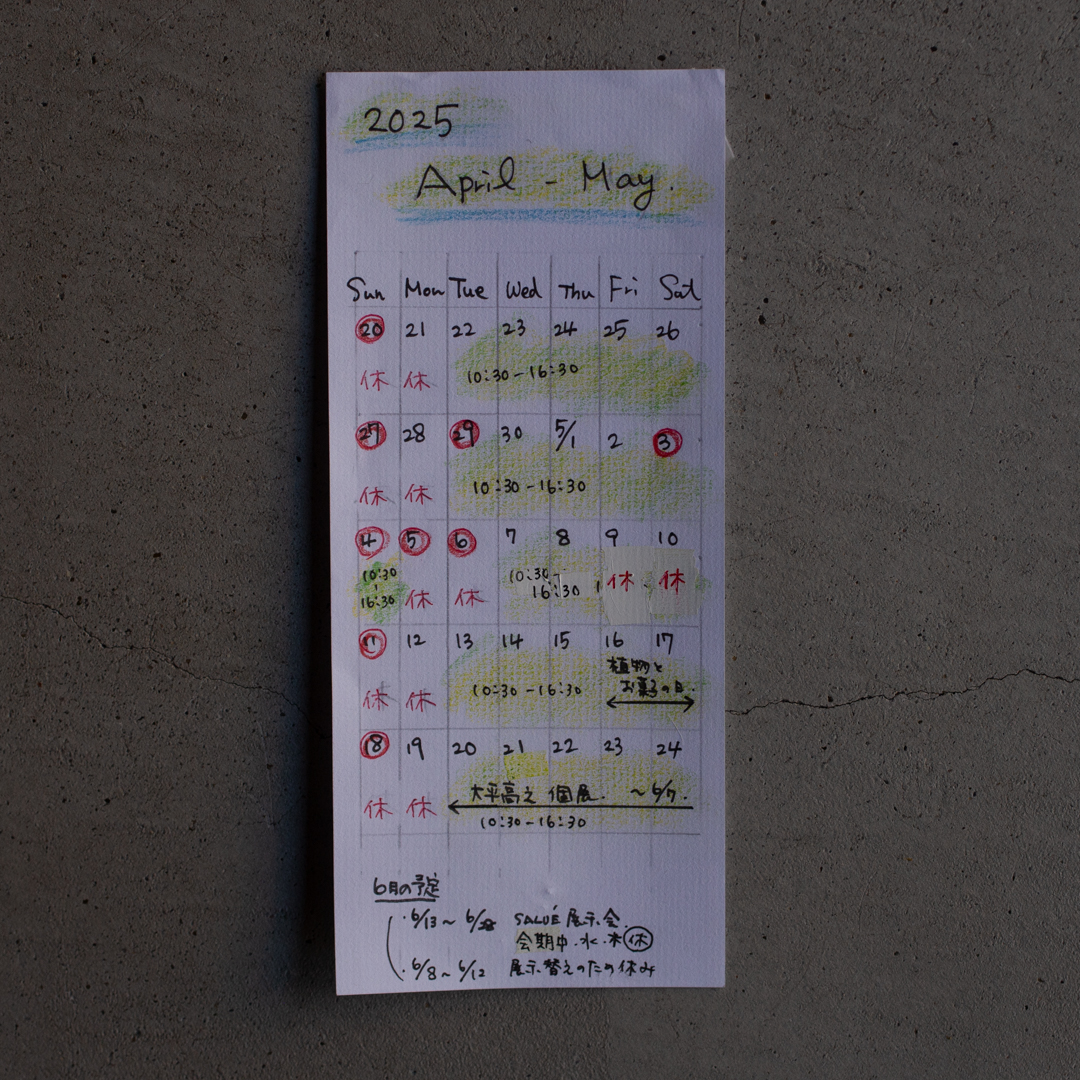 2025
April - May.
Sun Mon Tue Wed Thu Fri Sat
20 21 22 23 24 25 26
休 休 10:30-16:30
27 28 29 30 5/1 2 3
休 休 10:30-16:30
4 5 6 7 8 9 10
10:30 10:30- 休 . 休
16:30 休 休 16:30
11 12 13 14 15 16 17
植物と
お菓子の日.
休 休 10:30-16:30
18 19 20 21 22 23 24
休 休 大平高之 個展. ~6/7.
10:30-16:30
6月の予定
・6/13~6/ SALUÉ 展示会.
会期中.水.木 休
・6/8~6/12 展示替えのため休み